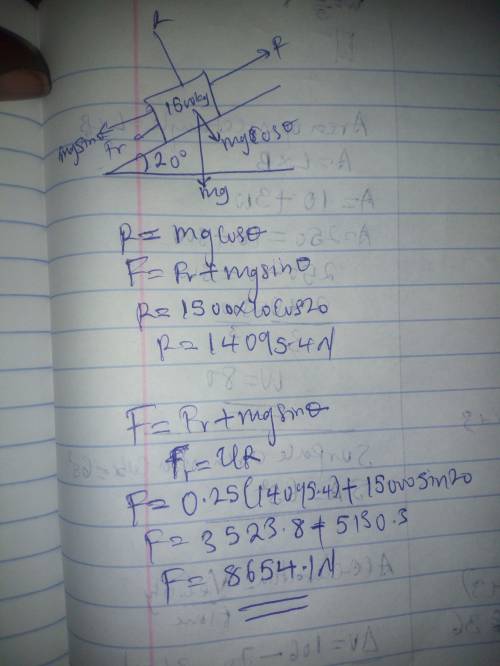 R
F
1500kg
mgsinθ
Fr
20°
mgcosθ
mg
R = mgcosθ
F = Fr + mgsinθ
R = 1500x10cos20
R = 14095.4N
F = Fr + mgsinθ
Fr = UR
F = 0.25(14095.4) + 15000sin20
F = 3523.8 + 5130.3
F = 8654.1N